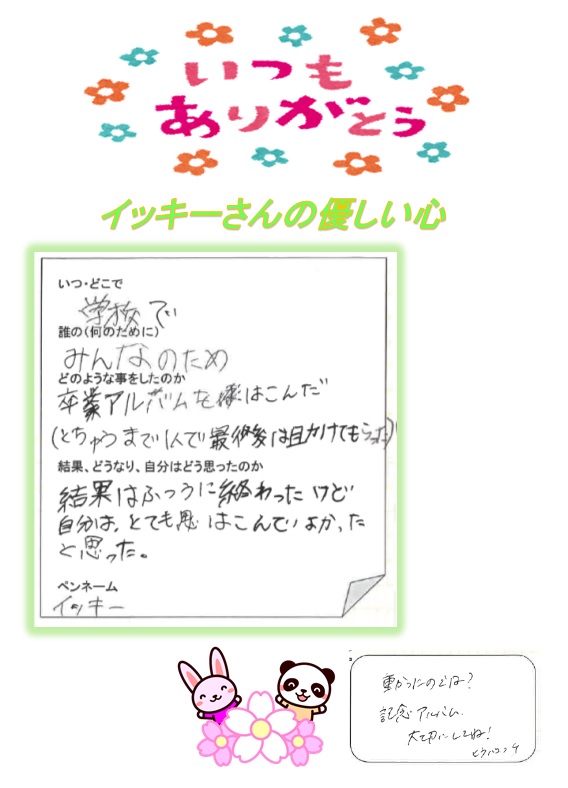 いつも
ありがとう
イッキーさんの優しい心
いつ・どこで
学校で
誰の(何のために)
みんなのため
どのような事をしたのか
卒業アルバムを僕はこんだ
(とちゅうまで1人で最後は助けてもらった)
結果、どうなり、自分はどう思ったのか
結果はふつうに終わったけど
自分は、とても はこんでいよかった
と思った。
ペンネーム
イッキー
重かったのでは?
記念アルバム
大切にしてね!